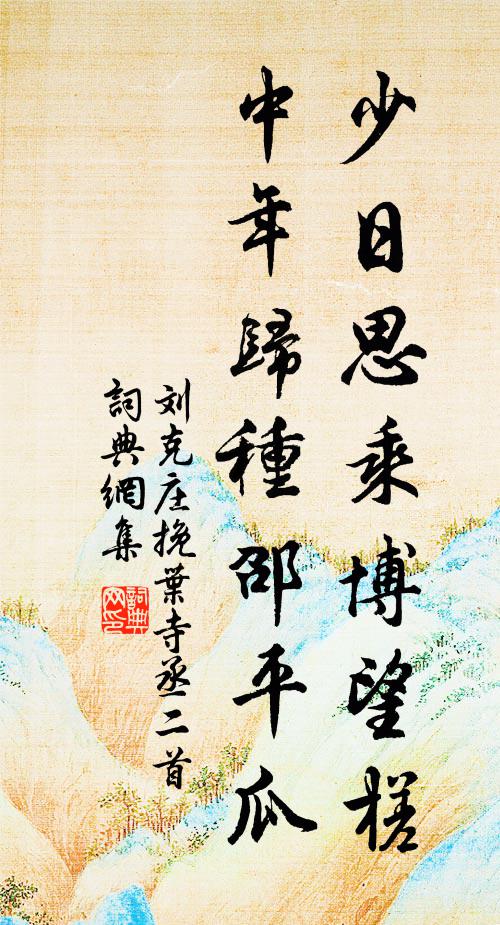 少日思乘博望槎
中年歸種邵平瓜
刘克庄挽葉寺丞二首
詞典網集
詞典网印